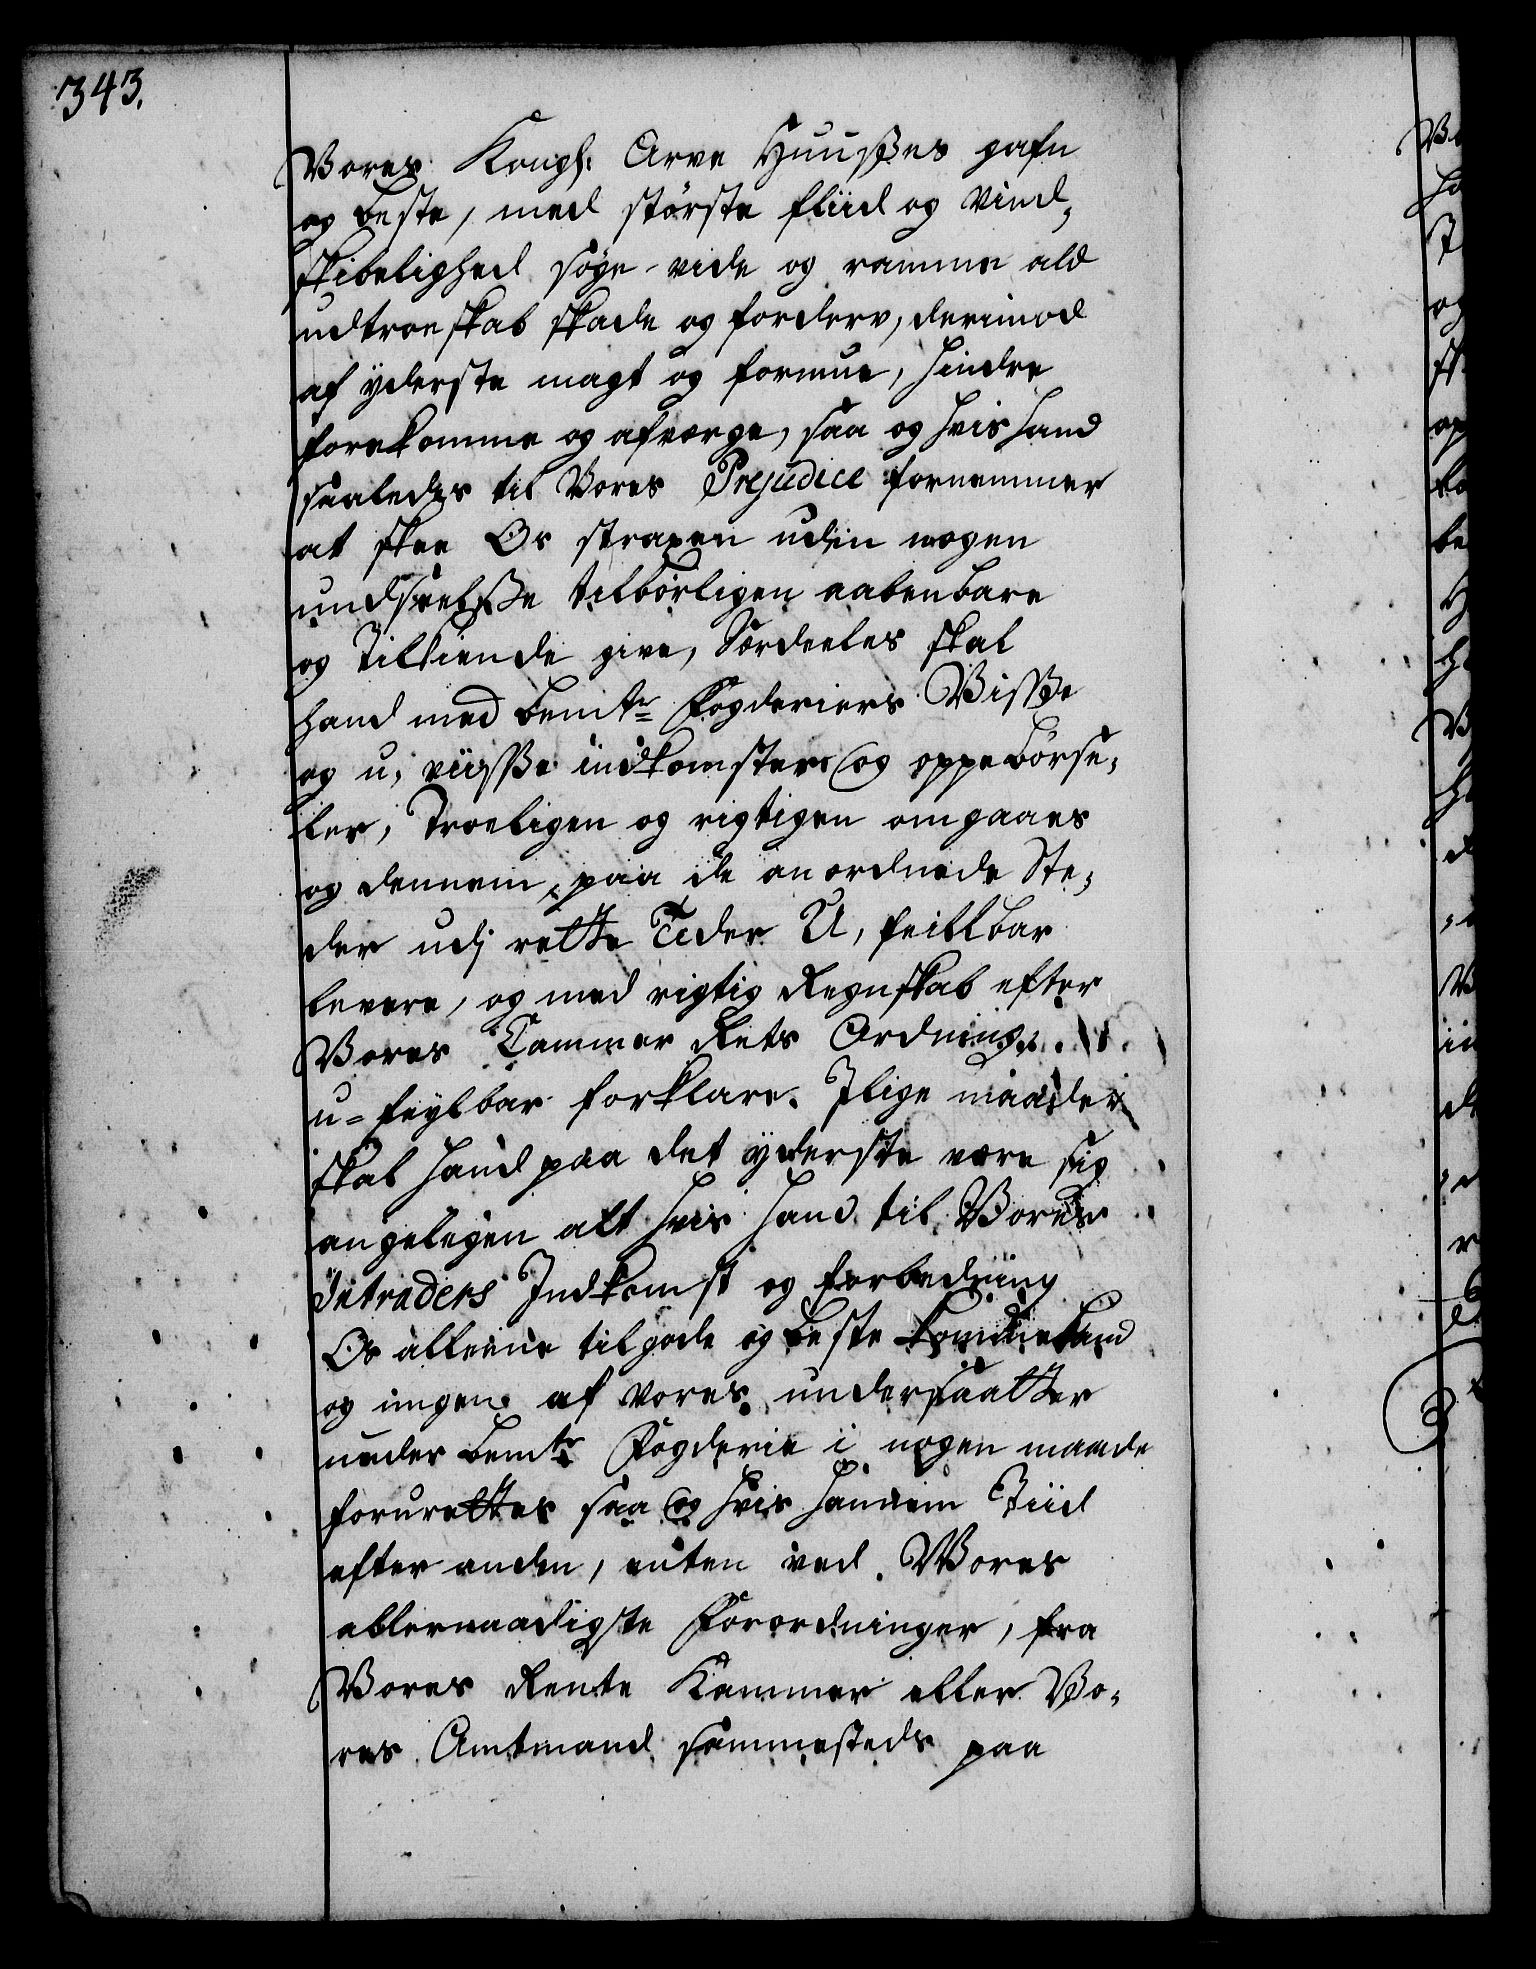 343.
Vores Kongl. Arve Huusses gafn
og beste, med störste fliid og Vind-
skibelighed söge vide og ramme ald
udtroeskab skade og forderv, derimod
af yderste magt og formue, hindre
forekomme og afverge, saa og hvis hand
saaledes til Vores Prejudice fornemmer
at skee Os straxen uden nogen
undseelsse tilbörligen aabenbare
og Tilkiende give, Særdeeles skal
hand med bemte Fogderiers Visse
og u, viisse indkomster og oppebörse-
ler, Troeligen og rigtigen omgaaes
og dennem paa de anordnede Ste-
der udj rette Tider U, feilbar
levere, og med rigtig Regnskab efter
Vores Cammer Rets Ordning
u-feylbar forklare. Jlige maader
skal hand paa det yderste være sig
angelegen alt hvis hand til Vores
Intraders Indkomst og forbedring
Os alleene til gode og beste
og ingen af Vores undersaatter
under bemte Fogderie i nogen maade
forurettes saa og hvis hannem Tiid
efter anden, enten ved Vores
allernaadigste Forordninger, fra
Vores Rente Kammer eller Vo-
res Amtmand sammesteds paa